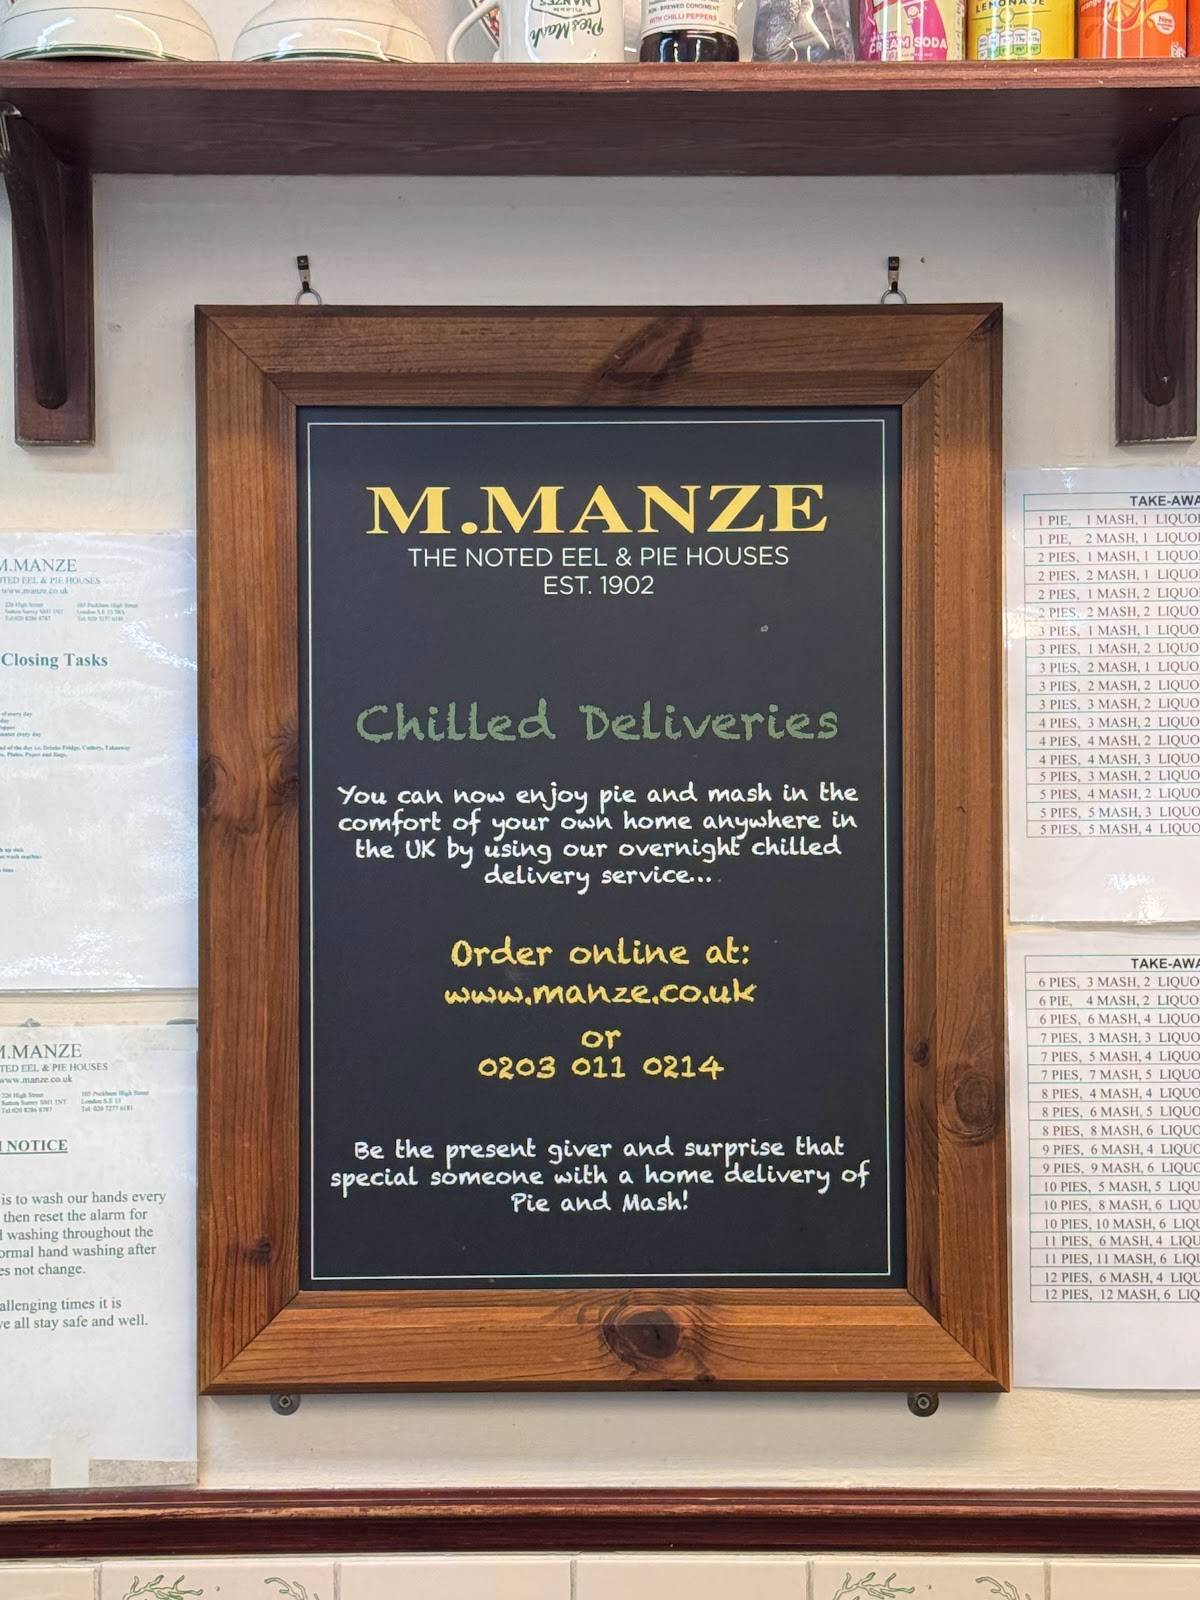 Pie & Mash
MANZE'S
NON-BREWED CONDIMENT
WITH CHILLI PEPPERS
CREAM SODA
LEMONADE
M.MANZE
THE NOTED EEL & PIE HOUSES
EST. 1902
Chilled Deliveries
You can now enjoy pie and mash in the
comfort of your own home anywhere in
the UK by using our overnight chilled
delivery service...
Order online at:
www.manze.co.uk
or
0203 011 0214
Be the present giver and surprise that
special someone with a home delivery of
Pie and Mash!
M.MANZE
TED EEL & PIE HOUSES
www.manze.co.uk
226 High Street 105 Peckham High Street
Sutton Surrey SM1 1NT
Tel:020 8286 8787 Tel: 020 7277 6181
Closing Tasks
of every day
.MANZE
TED EEL & PIE HOUSES
www.manze.co.uk
226 High Street 105 Peckham High Street
Sutton Surrey SM1 1NT London S.E 15
Tel:020 8286 8787 Tel: 020 7277 6181
NOTICE
is to wash our hands every
then reset the alarm for
washing throughout the
ormal hand washing after
es not change.
allenging times it is
e all stay safe and well.
TAKE-AWA
1 PIE, 1 MASH, 1 LIQUO
1 PIE, 2 MASH, 1 LIQUO
2 PIES, 1 MASH, 1 LIQUO
2 PIES, 2 MASH, 1 LIQUO
2 PIES, 1 MASH, 2 LIQUO
2 PIES, 2 MASH, 2 LIQUO
3 PIES, 1 MASH, 1 LIQUO
3 PIES, 1 MASH, 2 LIQUO
3 PIES, 2 MASH, 1 LIQUO
3 PIES, 2 MASH, 2 LIQUO
3 PIES, 3 MASH, 2 LIQUO
4 PIES, 3 MASH, 2 LIQUO
4 PIES, 4 MASH, 2 LIQUO
4 PIES, 4 MASH, 3 LIQUO
5 PIES, 3 MASH, 2 LIQUO
5 PIES, 4 MASH, 2 LIQUO
5 PIES, 5 MASH, 3 LIQUO
5 PIES, 5 MASH, 4 LIQUO
TAKE-AWA
6 PIES, 3 MASH, 2 LIQUO
6 PIE, 4 MASH, 2 LIQUO
6 PIES, 6 MASH, 4 LIQUO
7 PIES, 3 MASH, 3 LIQUO
7 PIES, 5 MASH, 4 LIQUO
7 PIES, 7 MASH, 5 LIQUO
8 PIES, 4 MASH, 4 LIQUO
8 PIES, 6 MASH, 5 LIQUO
8 PIES, 8 MASH, 6 LIQUO
9 PIES, 6 MASH, 4 LIQUO
9 PIES, 9 MASH, 6 LIQUO
10 PIES, 5 MASH, 5 LIQU
10 PIES, 8 MASH, 6 LIQU
10 PIES, 10 MASH, 6 LIQU
11 PIES, 6 MASH, 4 LIQU
11 PIES, 11 MASH, 6 LIQU
12 PIES, 6 MASH, 4 LIQU
12 PIES, 12 MASH, 6 LIQ